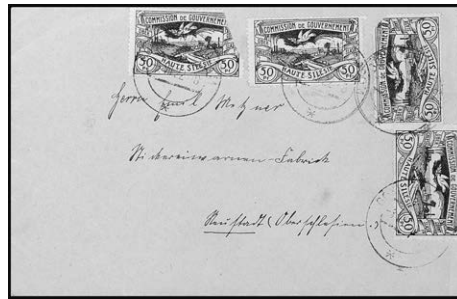 COMMISSION DE GOUVERNEMENT
HAUTE SILÉSIE
50 50
COMMISSION DE GOUVERNEMENT
HAUTE SILÉSIE
50 50
COMMISSION DE GOUVERNEMENT
HAUTE SILÉSIE
50 50
COMMISSION DE GOUVERNEMENT
HAUTE SILÉSIE
50 50
Herrn Metzner
Stickereiwaren-Fabrik
Neustadt (Oberschlesien)